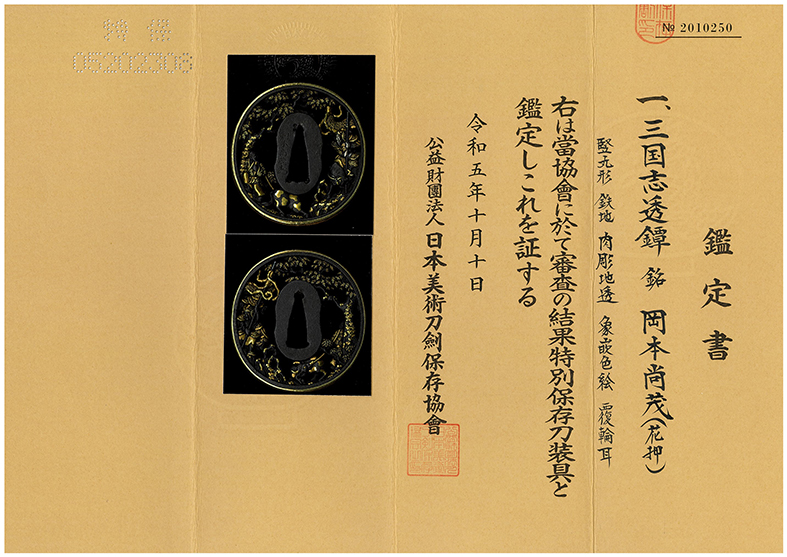 № 2010250
鑑定書
一、三国志透鐔 銘 岡本尚茂(花押)
竪丸形 鉄地 肉彫地透 象嵌色絵 覆輪耳
右は當協會に於て審査の結果特別保存刀装具と
鑑定しこれを証する
令和五年十月十日
公益財團法人 日本美術刀劍保存協會
特保
05202308